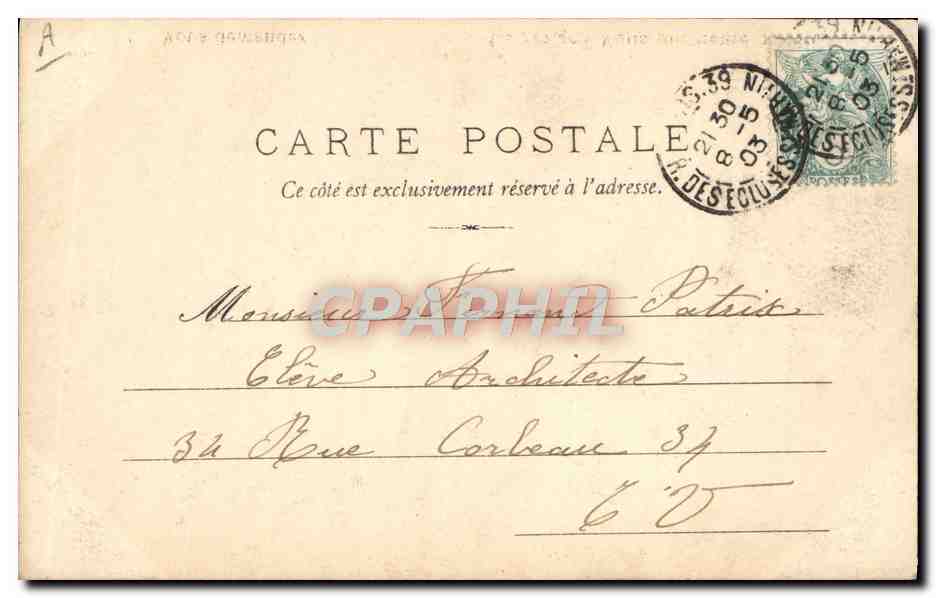 A
CARTE POSTALE
Ce côté est exclusivement réservé à l'adresse.
PARIS.39
21 30
8 -5
03
R. DES ECLUSES ST MARTIN
CPAPHIL
Monsieur Patrix
Elève Architecte
34 Rue Corbeau 34
E V